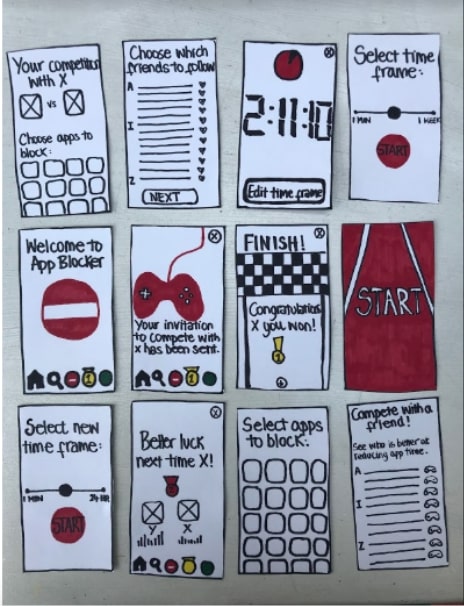 Your competition
with X
VS
Choose apps to
block:
Choose which
friends to follow
A
I
Z
NEXT
2:11:10
Edit time frame
Select time
frame:
1 MIN
1 WEEK
START
Welcome to
App Blocker
1
Your invitation
to compete with
x has been sent.
1
FINISH!
Congratulations
X you won!
1
START
Select new
time frame:
1 MIN
24 HR
START
Better luck
next time X!
Y
X
1
Select apps
to block:
Compete with a
friend!
See who is better at
reducing app time.
A
I
Z